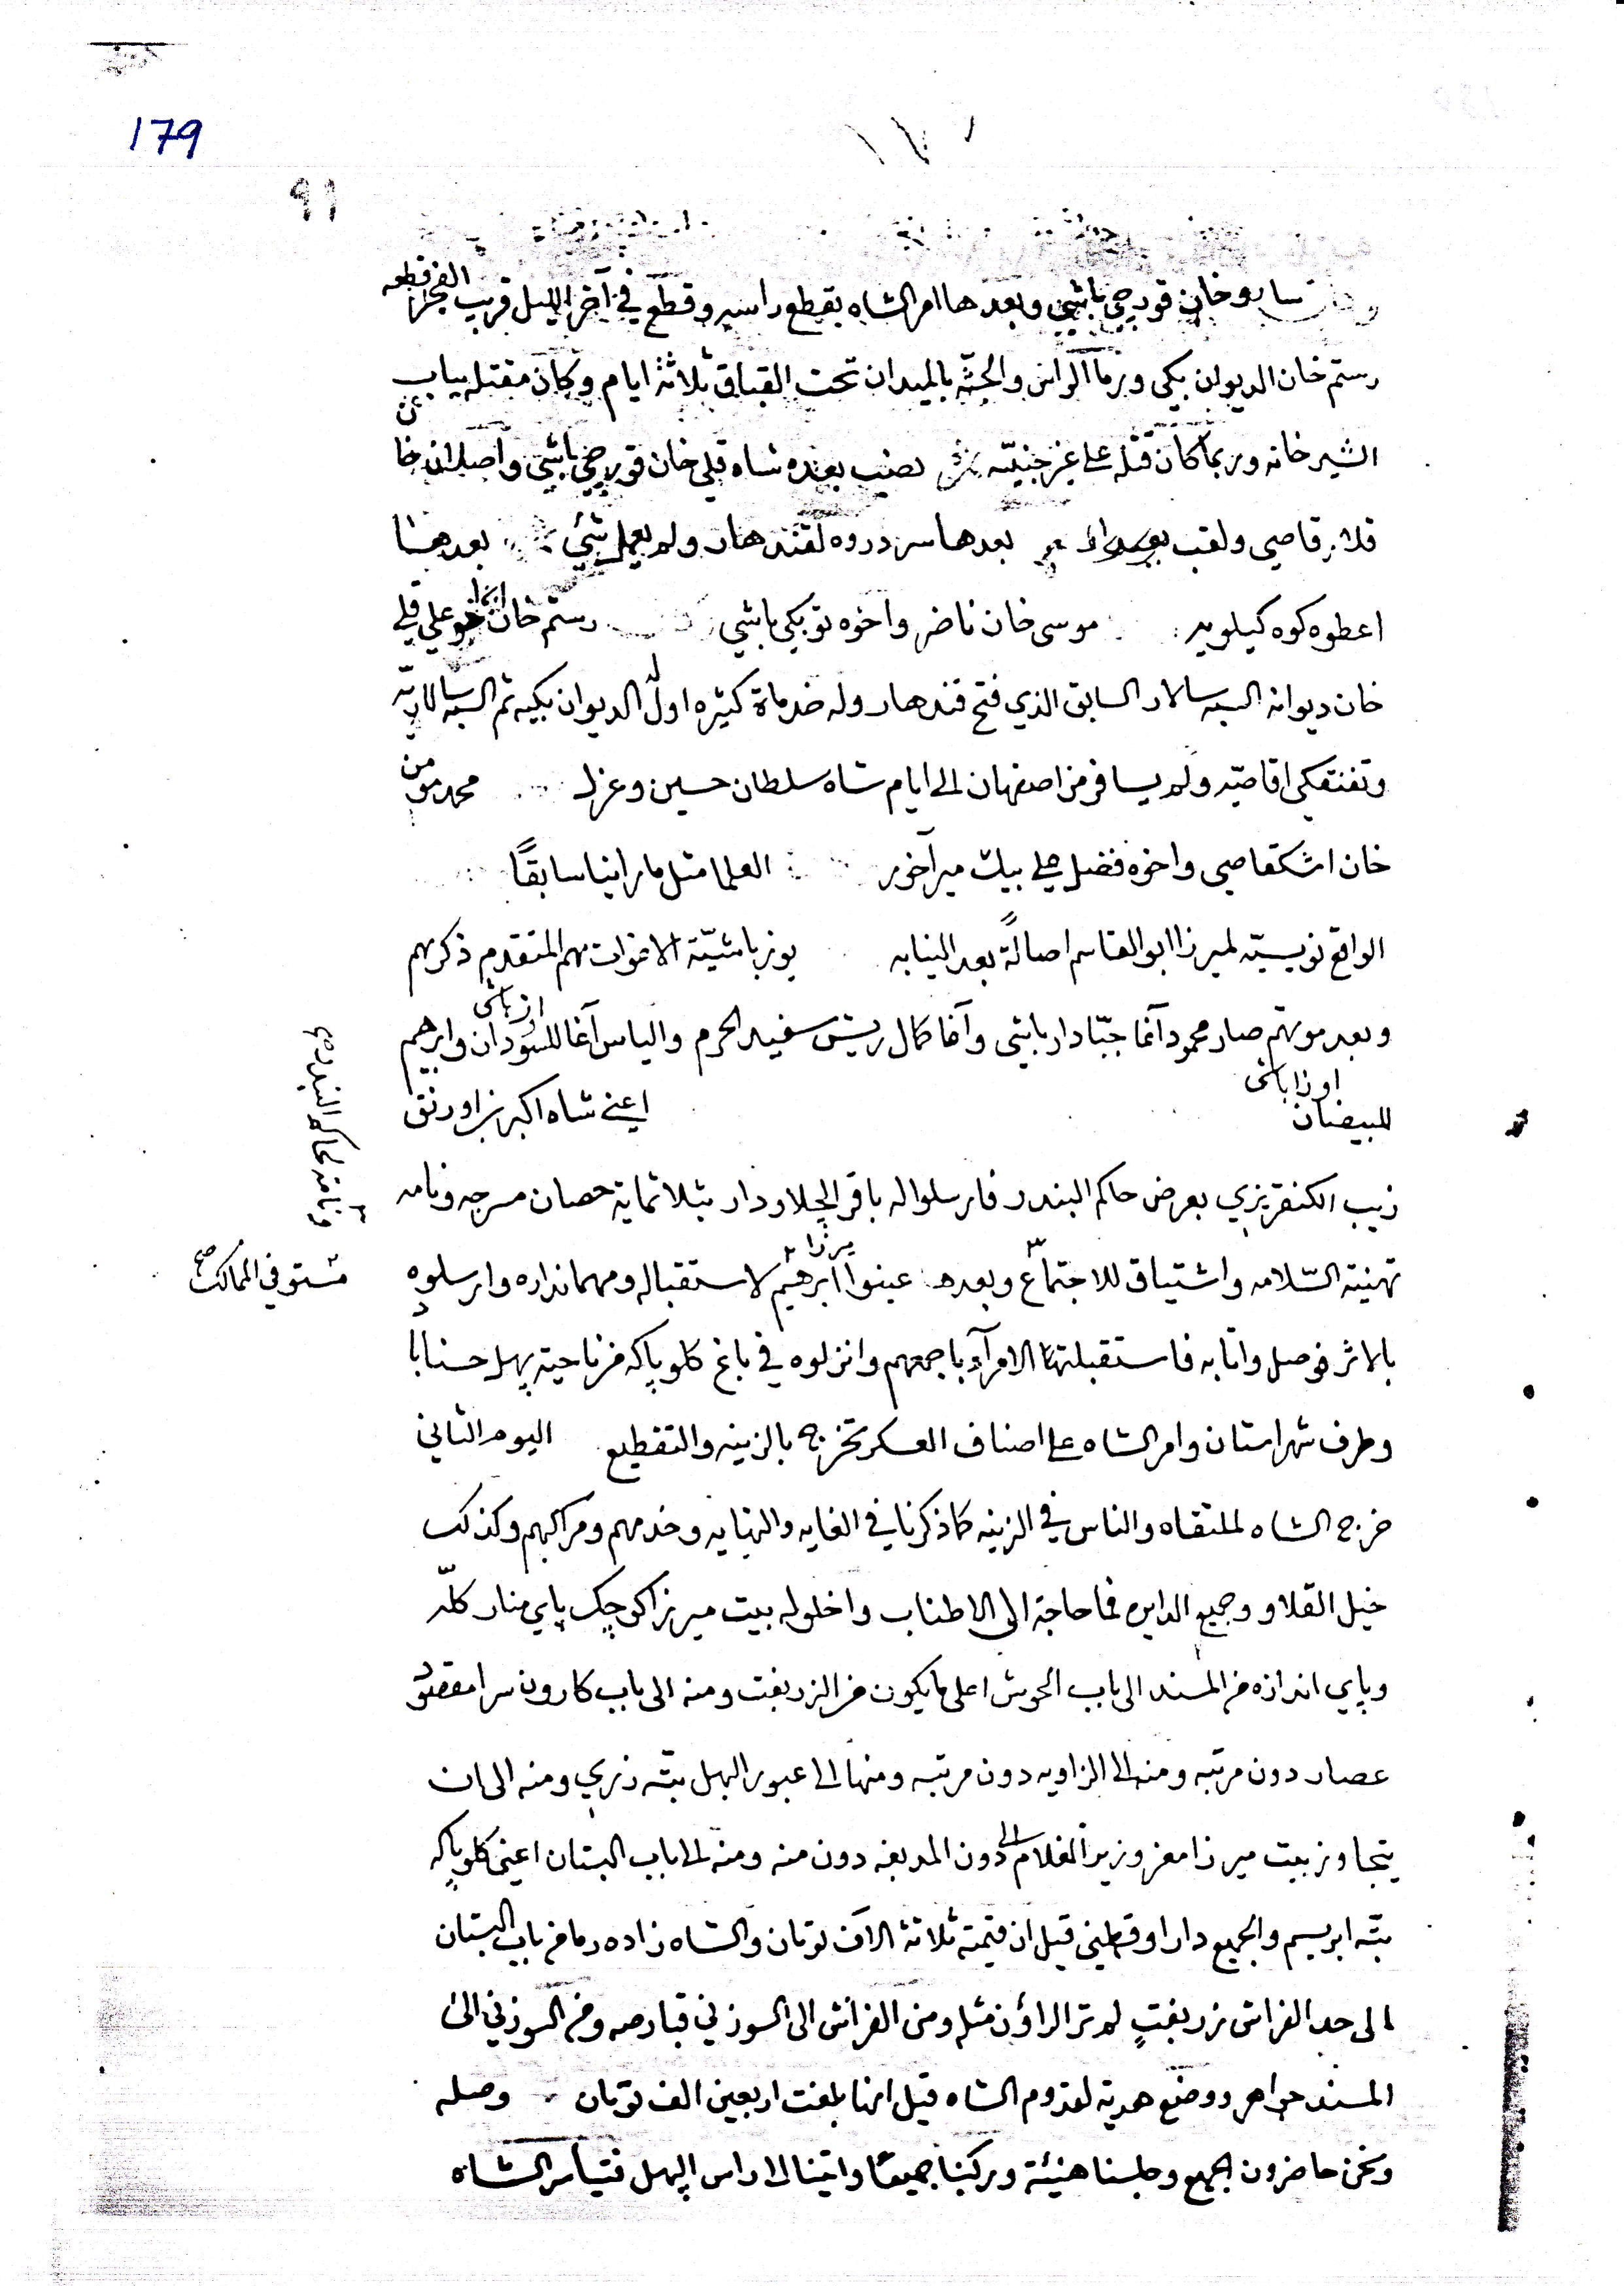 179
٩١
ساروخان قورچي باشي وبعدها امر الشاه بقطع راسه وقطع في آخر الليل قريب الفجر قطعه
رستم خان الديوان بيكي ورما الراس والجثّه بالميدان تحت القباق ثلاثة ايام وكان مقتله بباب
الشيرخانه وربما كان قتله على غير جنيّه نصب بعده شاه قلي خان قورچي باشي واصلان خان
قلار قاصي ولقب بعدها سردروه لقندهار ولم يعمل شئي بعد هذا
اعطوه كوه كيلويه موسى خان ناضر واخوه توبكي باشي رستم خان اخو علي قلي
خان ديوانه السپه سالار السابق الذي فتح قندهار وله خدماة كثيره اول له الديوان بكيه ثم السپه سالاريّه
وتفنقكي اقاصيّه ولم يسافر من اصفهان الى ايام شاه سلطان حسين وعزل محمد مومن
خان اشكقاصي واخوه فضل علي بيك ميرآخور العلما مثل ما راينا سابقًا
الواقع نويسيّه لميرزا ابو القاسم اصالةً بعد النيابه يوزباشيّة الاغوات هم المتقدم ذكرهم
وبعد موتهم صار محمود آغا جبّادار باشي وآغا كمال ريش سفيد الحرم والياس آغا للسودان اوزباشي وابرهيم
للبيضان اوزاباشي اعني شاه اكبر بن اورنق
زيب الكنقريزي بعرض حاكم البندر فارسلوا له باقر الجلاودار بثلاثماية حصان مسرجه ونامه
ونامة لحاكم البندر
تهنية السّلامه واشتياق للاجتماع وبعدها عينوا ميرزا ابرهيم لاستقباله ومهمانداره وارسلوه
مستوفي الممالك صح
بالاثر فوصل واتا به فاستقبلتها الامرآء باجمعهم وانزلوه في باغ كلوپاكه من ناحية پهل حسناباد
وطرف شهراستان وامر الشاه على اصناف العسكر تخرج بالزينه والتقطيع اليوم الثاني
خرج الشاه لملتقاه والناس في الزينه كما ذكرنا في الغايه والنهايه وخدمهم ومراكبهم وكذلك
خيل القلاو وجميع الدايره فما حاجة الى الاطناب واخلوا له بيت ميرزا كوچك پاي منار كلّه
وپاي اندازه من المسند الى باب الحوش اعلى ما يكون من الزربفت ومنه الى باب كارون سرا مقصود
عصار دون مرتبه ومنه الى الزاويه دون مرتبه ومنها الى عبور الپهل بتّه زري ومنه الى ان
يتجاوز بيت ميرزا معز وزير الغلام الى دون المدبغه دون منه ومنه الى باب البستان اعني كلوپاكه
بتّه ابريسم والجميع دارا وقطيني قيل ان قيمته ثلاثة الآف تومان والشاه زاده رما من باب البستان
الى حد الفراش زربفتٍ لم تر الراؤن مثله ومن الفراش الى السوزني قبارصه ومن السوزني الى
المسند جواهر ووضع هدية لقدوم الشاه قيل انها بلغت اربعين الف تومان وصله
ونحن حاضرون الجميع وجلسنا هنيئة وركبنا جميعًا واتينا الى راس الپهل فتياسر الشاه